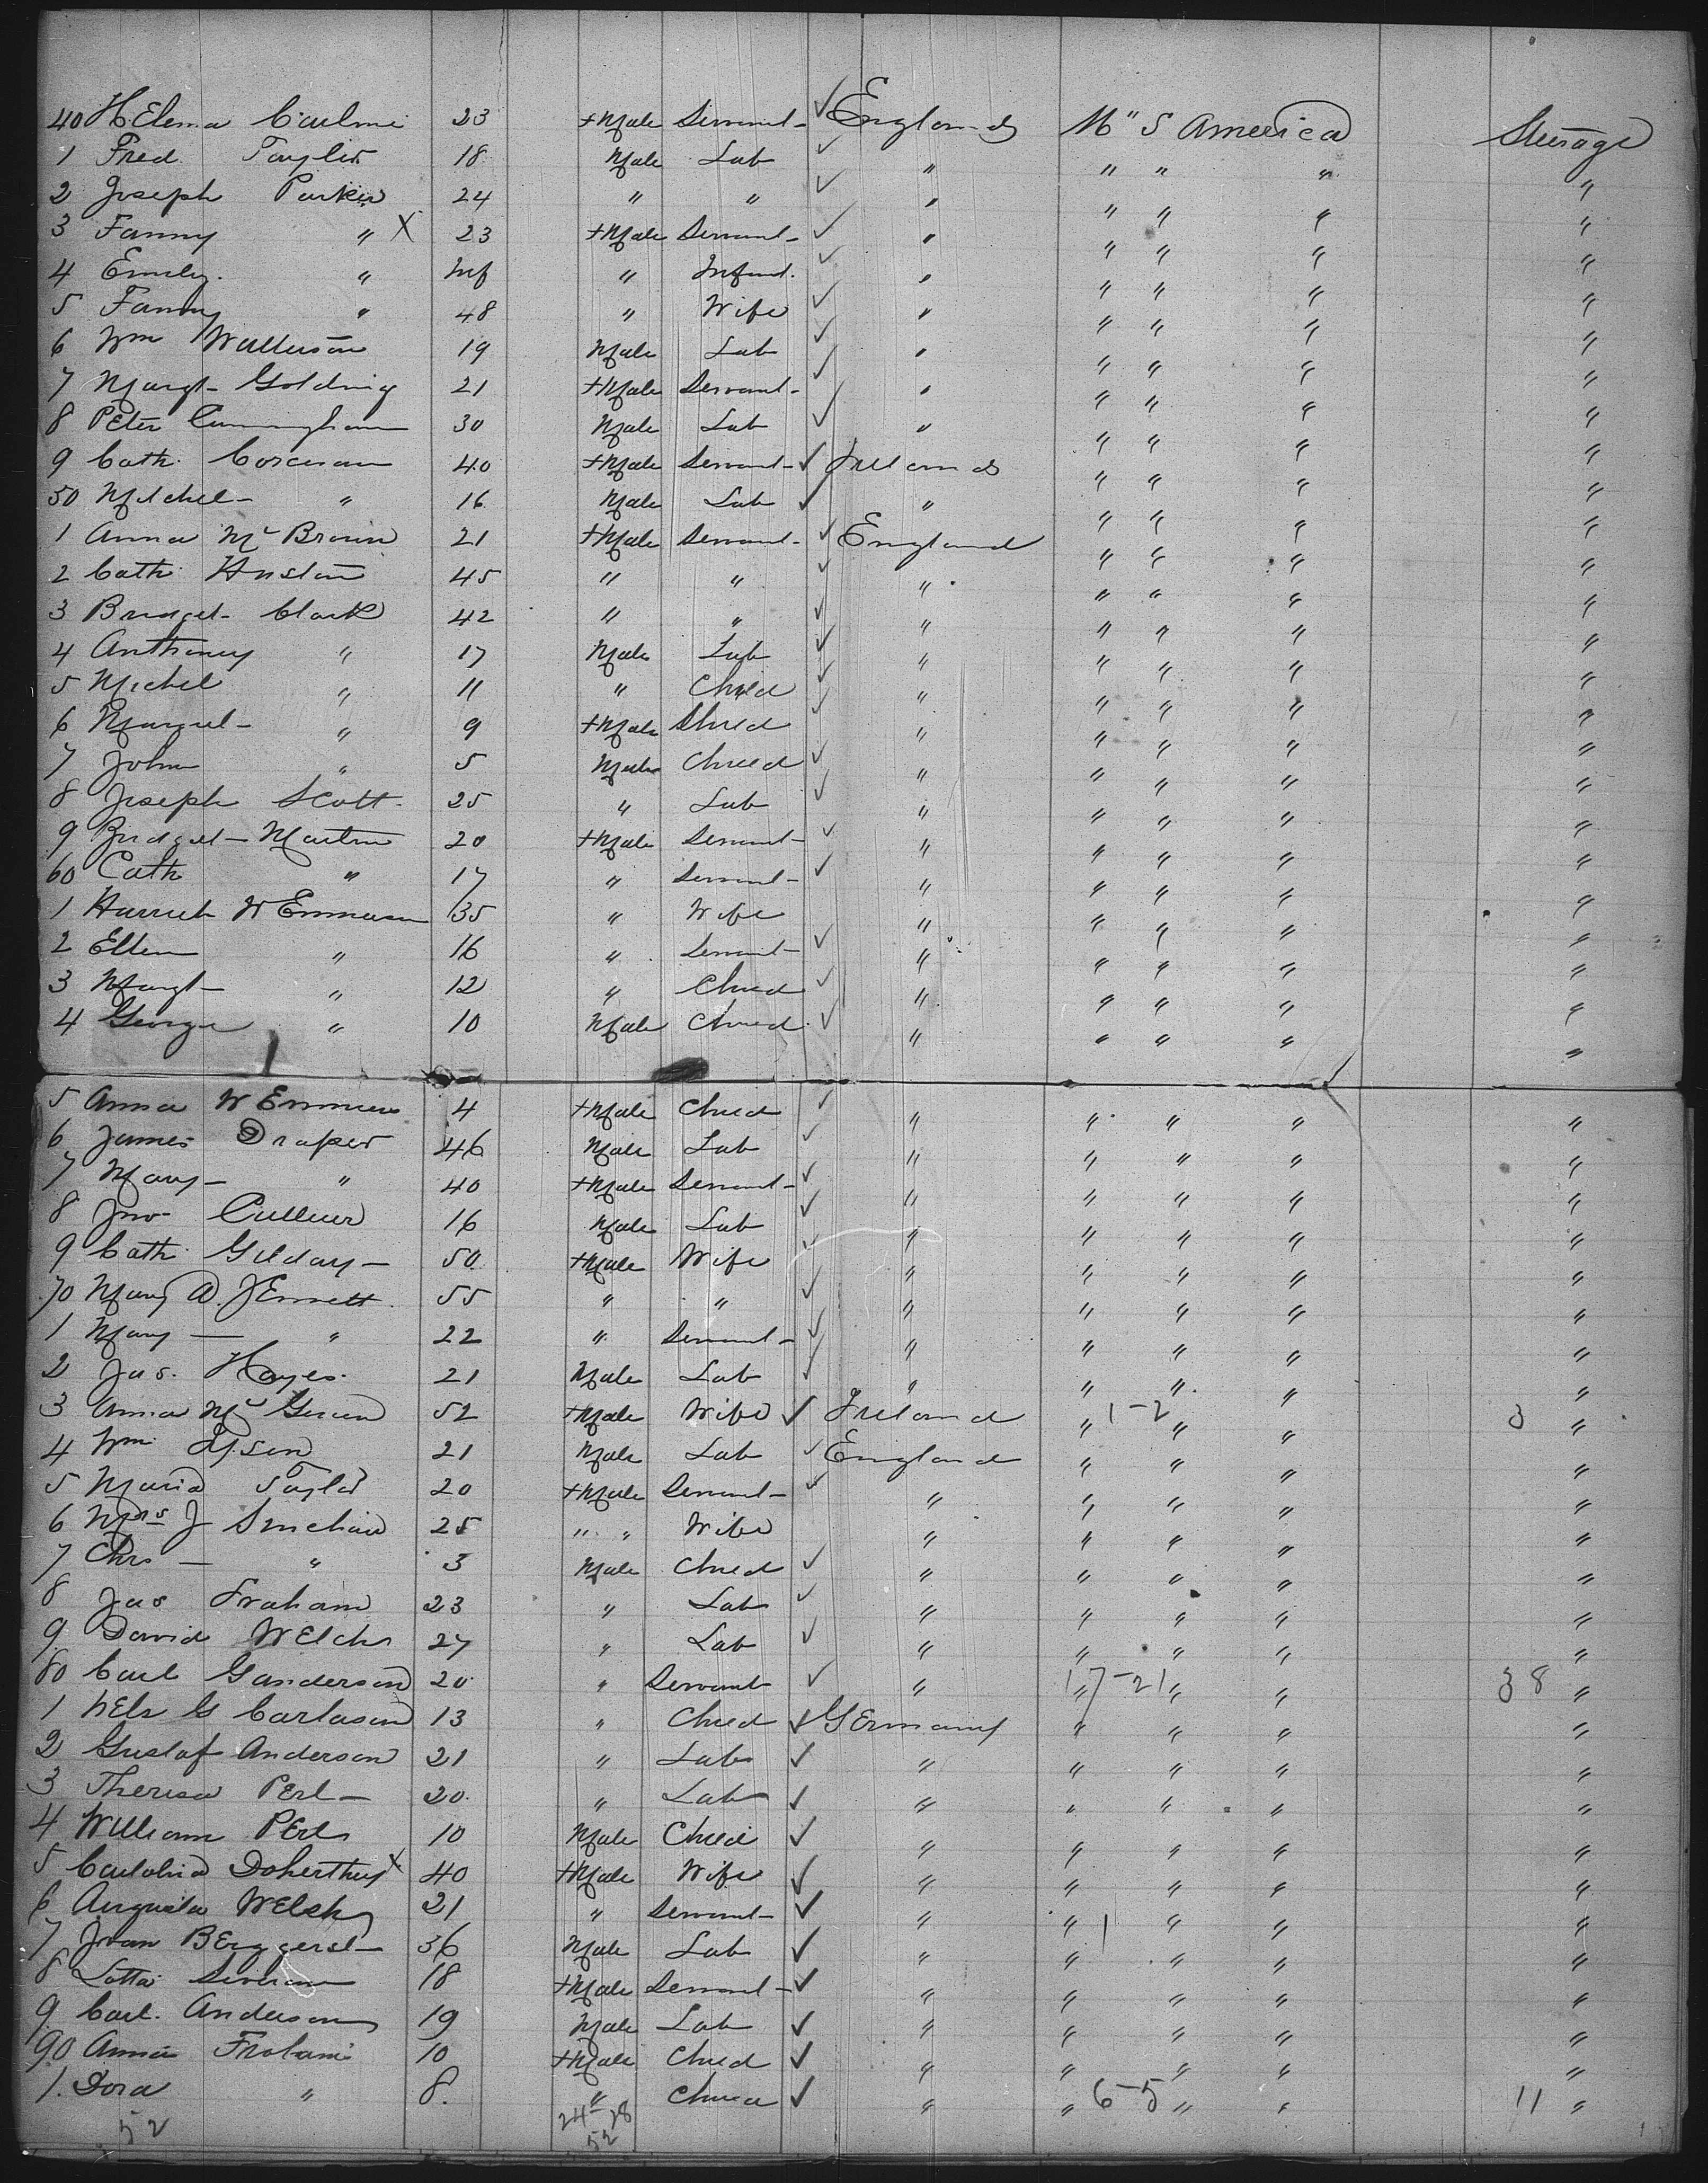 40 H.Elena 23 +Male Servant ✓ England M" S America Steerage
1 Fred. Taylor 18 Male Lab ✓ " " " " "
2 Joseph Parker 24 " " ✓ " " " " "
3 Fanny " X 23 +Male Servant ✓ " " " " "
4 Emily. " Inf " Infant. ✓ " " " " "
5 Fanny " 48 " Wife ✓ " " " " "
6 Wm 19 Male Lab ✓ " " " " "
7 Margt Golding 21 +Male Servant ✓ " " " " "
8 Peter Cunningham 30 Male Lab ✓ " " " " "
9 Cath. Corcoran 40 +Male Servant ✓ Ireland " " " "
50 Michel " 16 Male Lab ✓ " " " " "
1 Anna Mc Brown 21 +Male Servant ✓ England " " " "
2 Cath Huston 45 " " ✓ " " " " "
3 Bridget Clark 42 " " ✓ " " " " "
4 Anthony " 17 Male Lab ✓ " " " " "
5 Michel " 11 " Child ✓ " " " " "
6 Margret " 9 +Male Child ✓ " " " " "
7 John " 5 Male Child ✓ " " " " "
8 Joseph Scott. 25 " Lab ✓ " " " " "
9 Bridget Martin 20 +Male Servant ✓ " " " " "
60 Cath " 17 " Servant ✓ " " " " "
1 Harriet 35 " Wife " " " " "
2 Ellen " 16 " Servant ✓ " " " " "
3 Margt " 12 " Child ✓ " " " " "
4 George " 10 Male Child ✓ " " " " "
5 Anna 4 +Male Child ✓ " " " " "
6 James Draper 46 Male Lab ✓ " " " " "
7 Mary " 40 +Male Servant ✓ " " " " "
8 Jno 16 Male Lab ✓ " " " " "
9 Cath Gilday 50 +Male Wife ✓ " " " " "
70 Mary A. Jennett 55 " " ✓ " " " " "
1 Mary " 22 " Servant ✓ " " " " "
2 Jas. Hayes 21 Male Lab ✓ " " " " "
3 Anna Mc 52 +Male Wife ✓ Ireland " 1-2 " " 3 "
4 Wm 21 Male Lab ✓ England " " " "
5 Maria Taylor 20 +Male Servant ✓ " " " " "
6 Mrs J Sinclair 25 " " Wife " " " " "
7 Chrs " 3 Male Child ✓ " " " " "
8 Jas Graham 23 " Lab ✓ " " " " "
9 David Welch 27 " Lab ✓ " " " " "
80 Carl Ganderson 20 " Servant ✓ " " 17-21 " " 38 "
1 Nels G Carlason 13 " Child ✓ Germany " " " "
2 Gustaf Anderson 21 " Lab ✓ " " " " "
3 Theresa Perl 20 " Lab ✓ " " " " "
4 William Perl 10 Male Child ✓ " " " " "
5 Doherthy X 40 +Male Wife ✓ " " " " "
6 Augusta Welsh 21 " Servant ✓ " " 1 " " "
7 36 Male Lab ✓ " " " " "
8 Lotta 18 +Male Servant ✓ " " " " "
9 Carl. Anderson 19 Male Lab ✓ " " " " "
90 Anna 10 +Male Child ✓ " " " " "
1. Dora " 8. " Child ✓ " " 6-5 " " 11 "
52 24-28
52